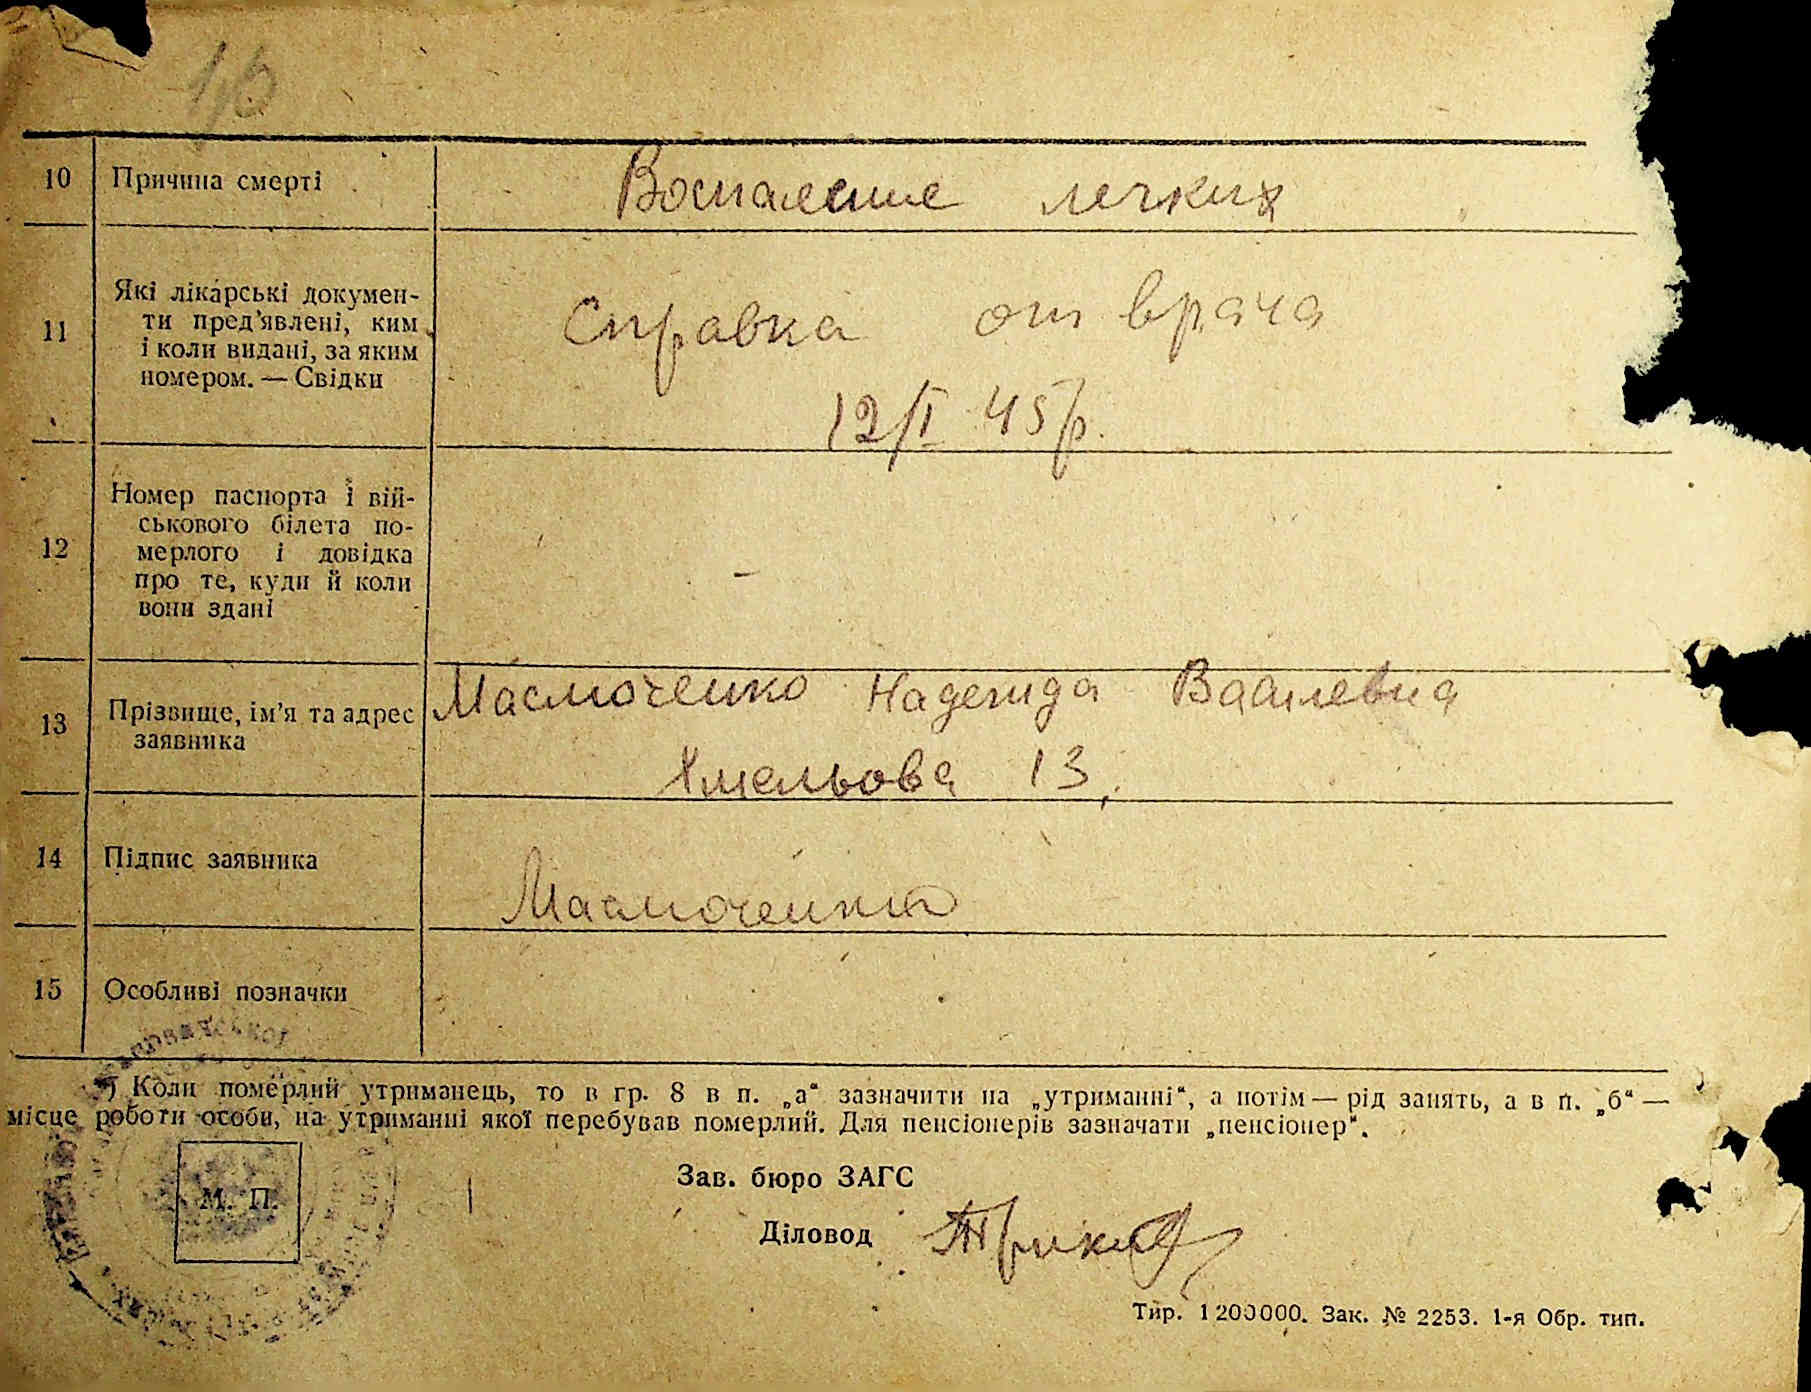 10 Причина смерті Воспаление легких
11 Які лікарські докумен-
ти пред’явлені, ким
і коли видані, за яким
номером. — Свідки
Справка от врача
12/I 45 р.
12 Номер паспорта і вій-
ськового білета по-
мерлого і довідка
про те, куди й коли
вони здані
—
13 Прізвище, ім’я та адрес
заявника
Надежда Васильевна
13,
14 Підпис заявника
15 Особливі позначки
*) Коли померлий утриманець, то в гр. 8 в п. „а“ зазначити на „утриманні“, а потім — рід занять, а в п. „б“ —
місце роботи особи, на утриманні якої перебував померлий. Для пенсіонерів зазначати „пенсіонер“.
М. П.
Зав. бюро ЗАГС
Діловод
Тир. 1 200000. Зак. № 2253. 1-я Обр. тип.